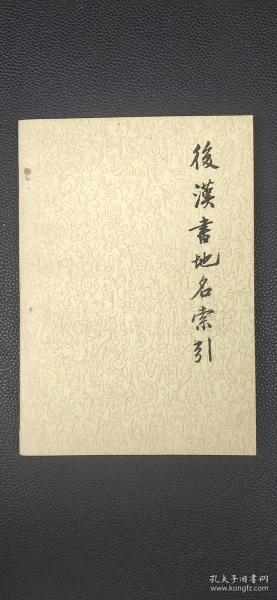 後漢書地名索引
孔夫子旧书网
www.kongfz.com